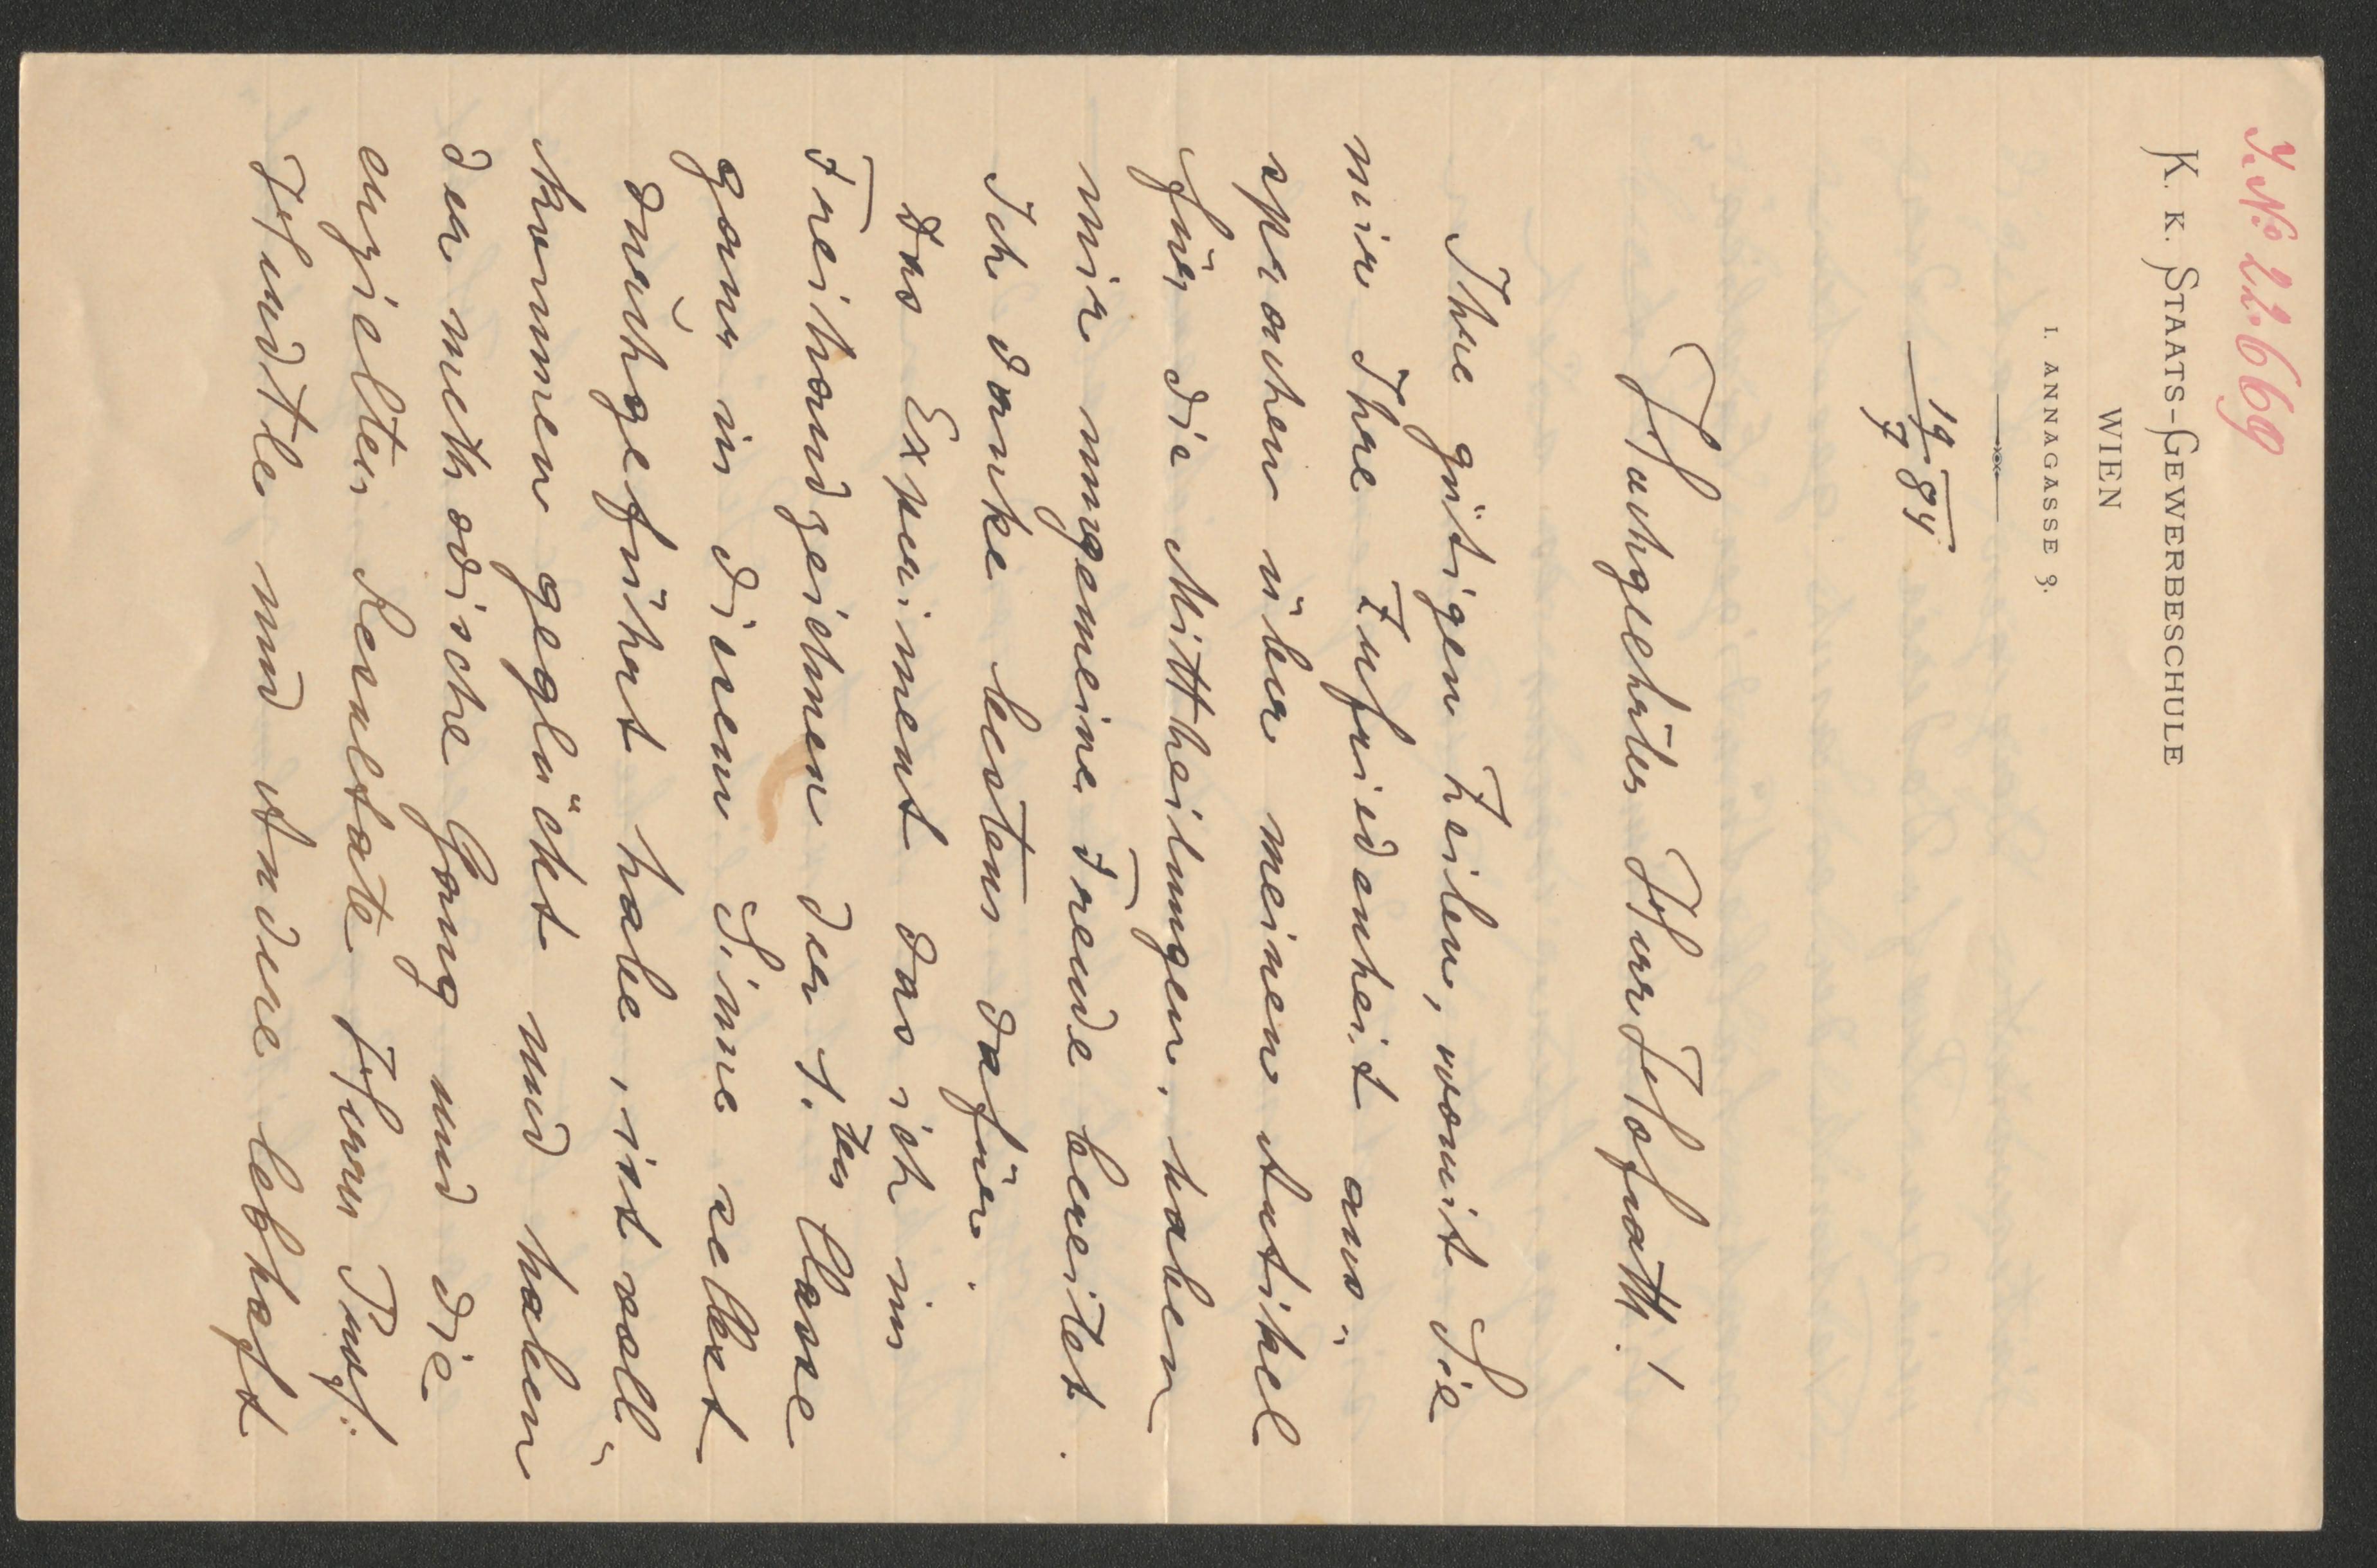 J. No 22.669
K. K. STAATS-GEWERBESCHULE
WIEN
I. ANNAGASSE 3.
19/7 84
Hochgeehrter Herr Hofrath!
Ihre gütigen Zeilen, womit Sie
mir Ihre Zufriedenheit aus-
sprachen über meinen Artikel
für die Mittheilungen, haben
mir ungemeine Freude bereitet.
Ich danke bestens dafür.
Das Experiment das ich im
Freihandzeichnen der 1.ten Classe
ganz in diesem Sinne selbst
durchgeführt habe, ist voll-
kommen geglückt und haben
der methodische Gang und die
erzielten Resultate Herrn Prof.
Hudtle und Andere lebhaft